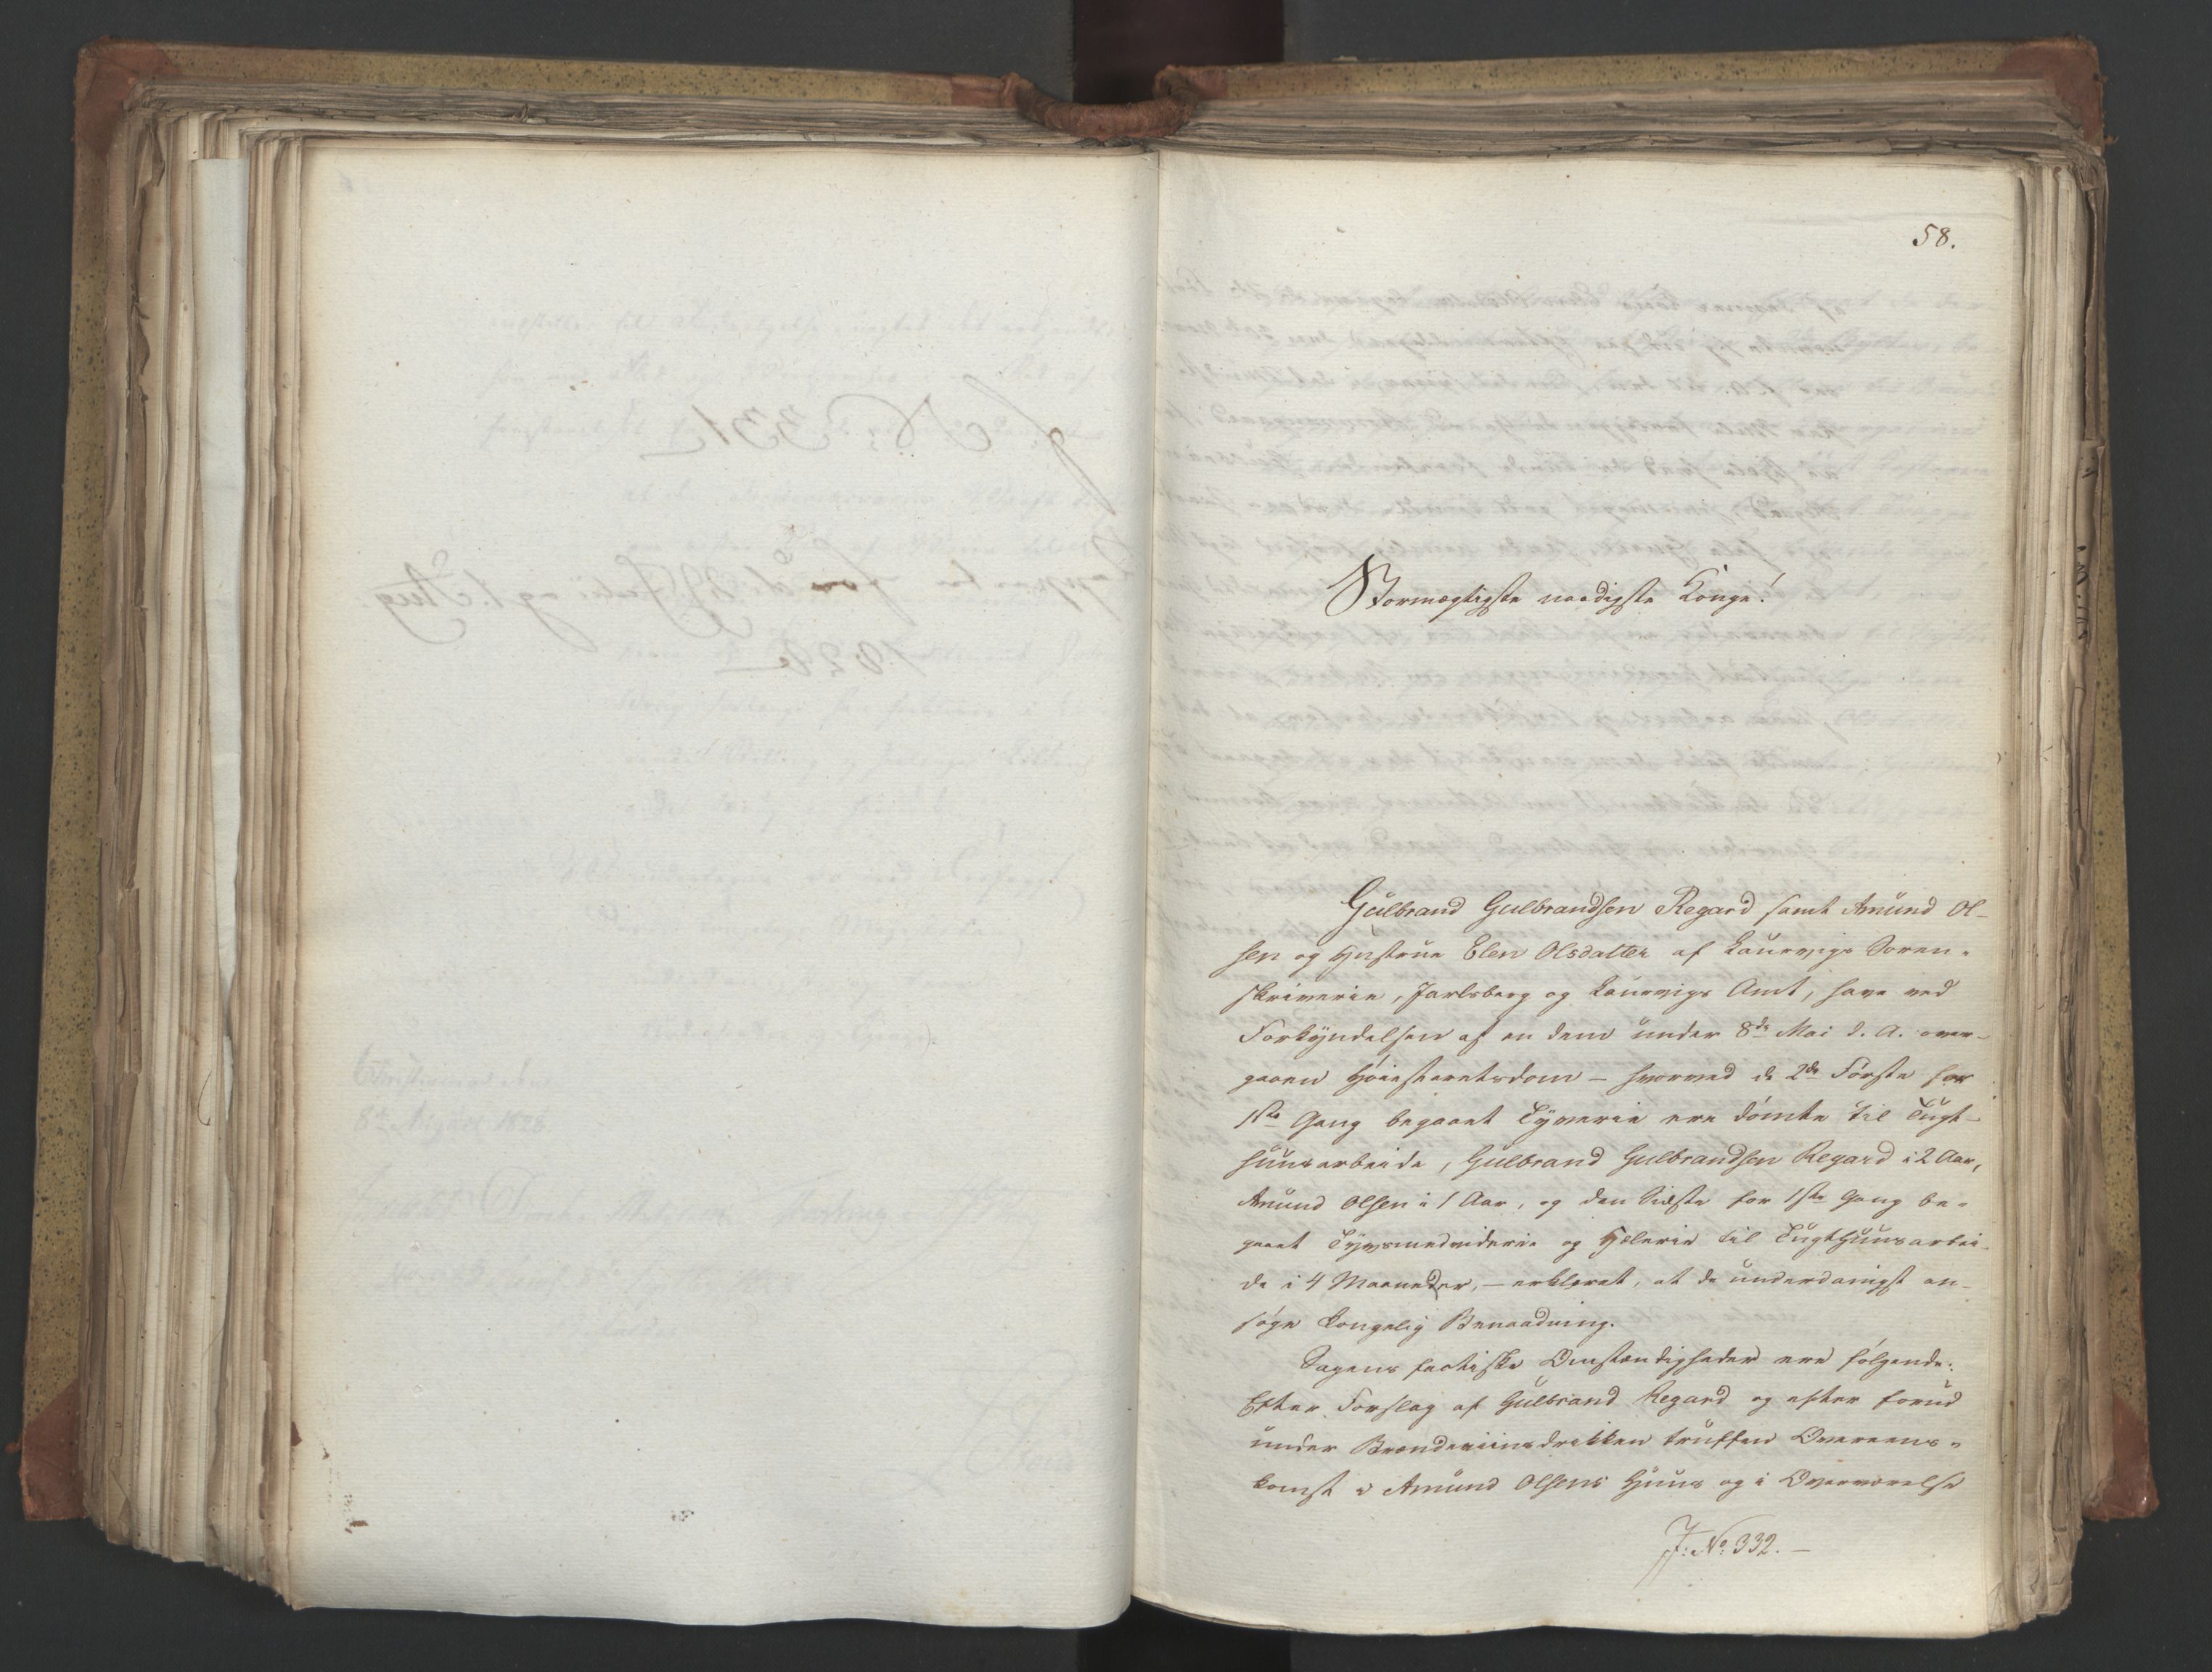 58.
Stormægtigste naadigste Konge!
Gulbrand Gulbrandsen Regard samt Amund Ol-
sen og Hustrue Elen Olsdatter af Laurvigs Soren-
skriverie, Jarlsberg og Laurvigs Amt, have ved
Forkyndelsen af en dem under 8de Mai d. A. over-
gaaen Høiesteretsdom – hvorved de 2de Første for
1ste Gang begaaet Tyverie ere dömte til Tugt-
huusarbeide, Gulbrand Gulbrandsen Regard i 2 Aar,
Amund Olsen i 1 Aar, og den Sidste for 1ste Gang be-
gaaet Tyvsmedviderie og Hælerie til Tugthuusarbei-
de i 4 Maaneder, – erklæret, at de underdanigst an-
søge Kongelig Benaadning.
Sagens factiske Omstændigheder ere følgende:
Efter Forslag af Gulbrand Regard og efter forud
under Brændeviinsdrikken truffen Overeens-
komst i Amund Olsens Huus og i Overværelse
J: No 332. –